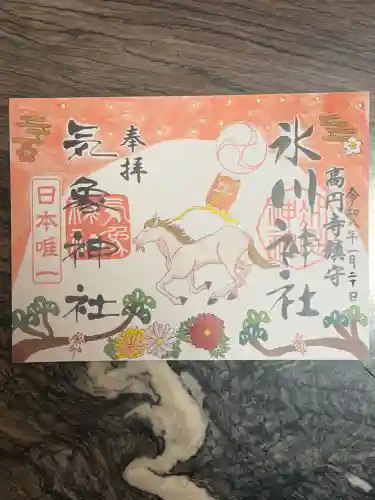 高円寺鎮守
令和八年一月二十日
氷川神社
奉拝
気象神社
日本唯一